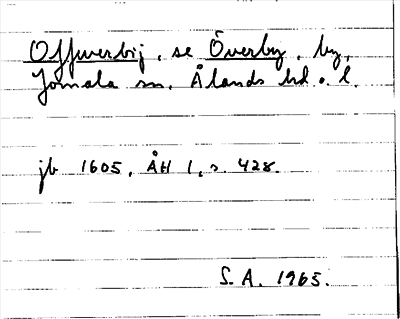 Offwerbij, se Överby, by,
Jomala sn. Ålands hd o. l.
jb 1605, ÅH 1, s. 428.
S. A. 1965.